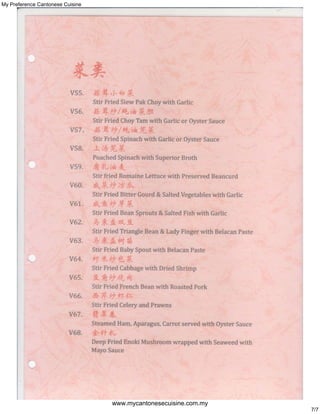 My Preference Cantonese Cuisine
菜类
V55. 蒜茸小白菜
Stir Fried Siew Pak Choy with Garlic
V56. 蒜茸炒/蚝油菜胆
Stir Fried Choy Tam with Garlic or Oyster Sauce
V57. 蒜茸炒/蚝油苋菜
Stir Fried Spinach with Garlic or Oyster Sauce
V58. 上汤苋菜
Poached Spinach with Superior Broth
V59. 腐乳油麦
Stir fried Romaine Lettuce with Preserved Beancurd
V60. 咸菜炒凉瓜
Stir Fried Bitter Gourd & Salted Vegetables with Garlic
V61. 咸鱼炒芽菜
Stir Fried Bean Sprouts & Salted Fish with Garlic
V62. 马来盏双豆
Stir Fried Triangle Bean & Lady Finger with Belacan Paste
V63. 马来盏树苗
Stir Fried Baby Spout with Belacan Paste
V64. 虾米炒包菜
Stir Fried Cabbage with Dried Shrimp
V65. 豆角炒烧肉
Stir Fried French Bean with Roasted Pork
V66. 西芹炒虾仁
Stir Fried Celery and Prawns
V67. 翡翠卷
Steamed Ham, Aparagus, Carrot served with Oyster Sauce
V68.
Deep Fried Enoki Mushroom wrapped with Seaweed with
Mayo Sauce
www.mycantonesecuisine.com.my
7/7